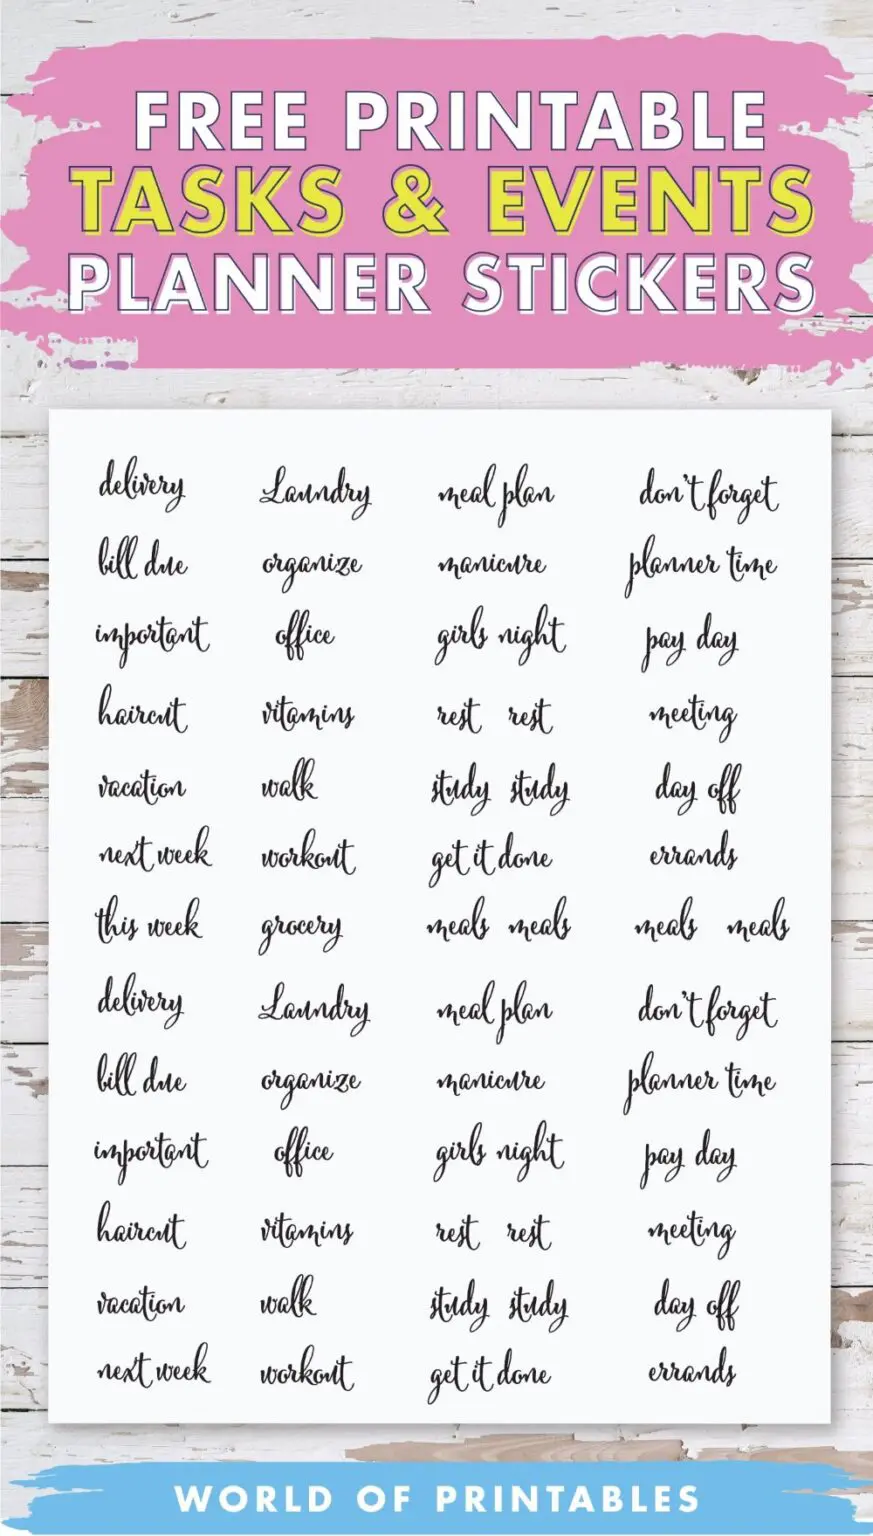 FREE PRINTABLE
TASKS & EVENTS
PLANNER STICKERS
delivery Laundry meal plan don't forget
bill due organize manicure planner time
important office girls night pay day
haircut vitamins rest rest meeting
vacation walk study study day off
next week workout get it done errands
this week grocery meals meals meals meals
delivery Laundry meal plan don't forget
bill due organize manicure planner time
important office girls night pay day
haircut vitamins rest rest meeting
vacation walk study study day off
next week workout get it done errands
WORLD OF PRINTABLES